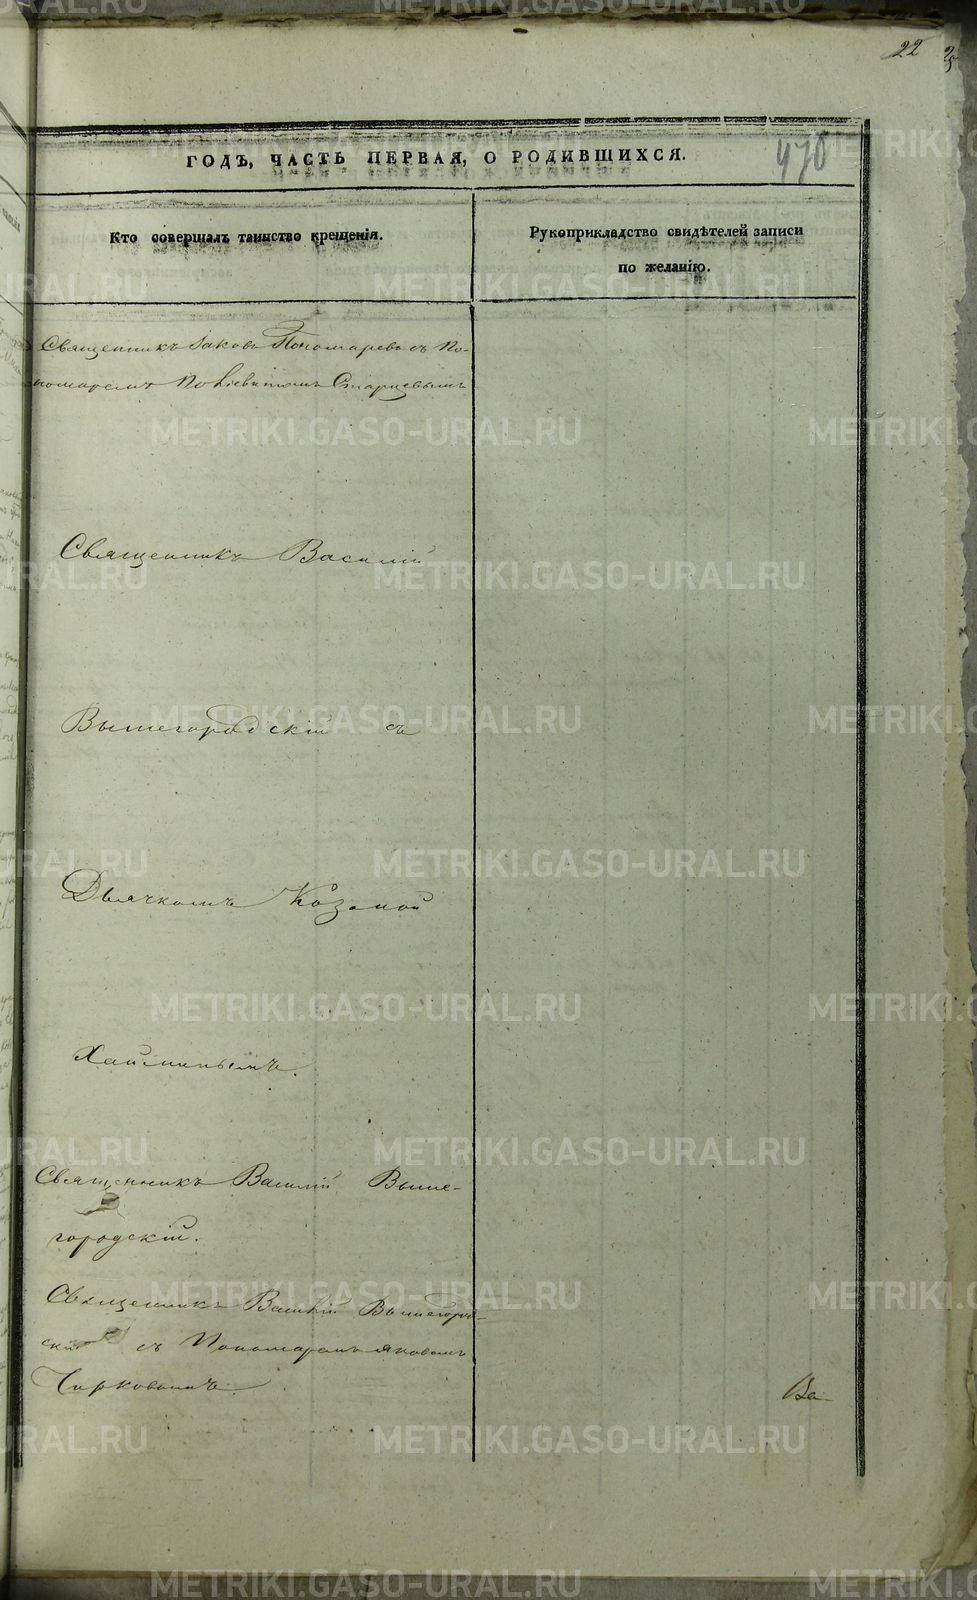 22
470
ГОДЪ, ЧАСТЬ ПЕРВАЯ, О РОДИВШИХСЯ.
Кто совершалъ таинство крещенія.
Рукоприкладство свидѣтелей записи
по желанію.
Священникъ Іаковъ Пономаревъ съ По-
номаремъ Старцевымъ
Священникъ Василій
Вышегородскій съ
Дьячкомъ Козмой
Хайминымъ.
Священникъ Василій Выше-
городскій.
Священникъ Василій Вышегород-
скій съ Пономаремъ Яковомъ
Чирковымъ
METRIKI.GASO-URAL.RU